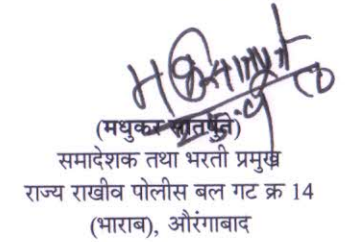 (मधुकर सातपुते)
समादेशक तथा भरती प्रमुख
राज्य राखीव पोलीस बल गट क्र 14
(भाराब), औरंगाबाद